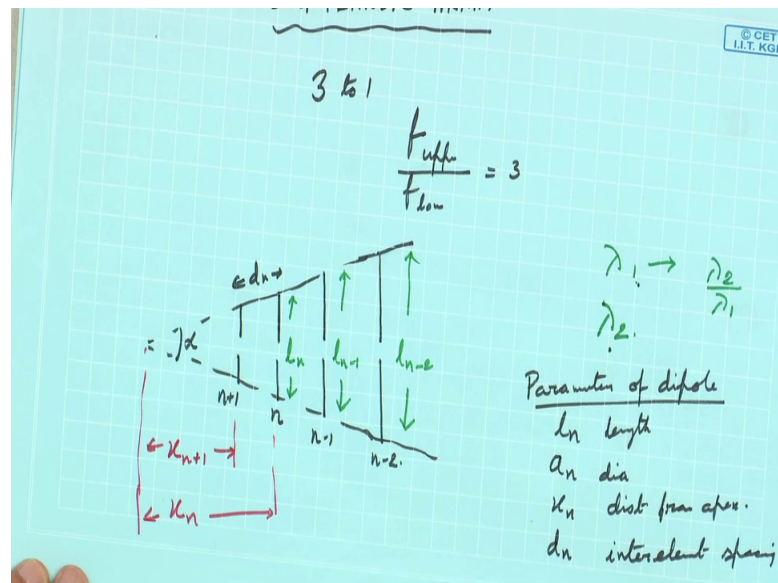 © CET
I.I.T. KGP
3 to 1
f upp / f low = 3
λ1 → λ2 / λ1
λ2.
← dn →
α
ln
ln-1
ln-2
n+1
n
n-1
n-2.
← xn+1 →
← xn →
Parameter of dipole
ln length
an dia
xn dist from apex.
dn interelent spacing